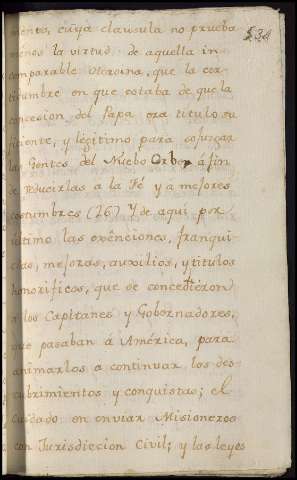 mente, cuya clausula no prueba
menos la virtud de aquella in
comparable Heroina, que la cer
tidumbre en que estaba de que la
concesion del Papa era titulo su
ficiente, y lexitimo para sojuzgar
las Gentes del Nuebo Orbe, á fin
de reducirlas a la Fé y a mejores
costumbres (26) Y de aqui por
ultimo las exênciones, franqui
cias, mejoras, auxîlios, y titulos
honorificos, que se concedieron
a los Capitanes y Gobernadores,
que pasaban á América, para
animarlos a continuar los des
cubrimientos y conquistas; el
Cuidado en enviar Misioneros
con Jurisdiccion Civil; y las leyes